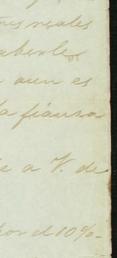 reales
haberles
aun es
la fianza
a V. de
por el 10%